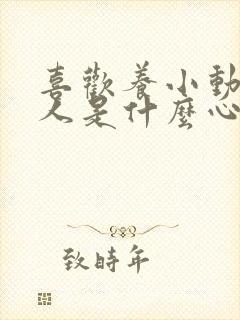 喜歡養小動
人是什麼心
致時年